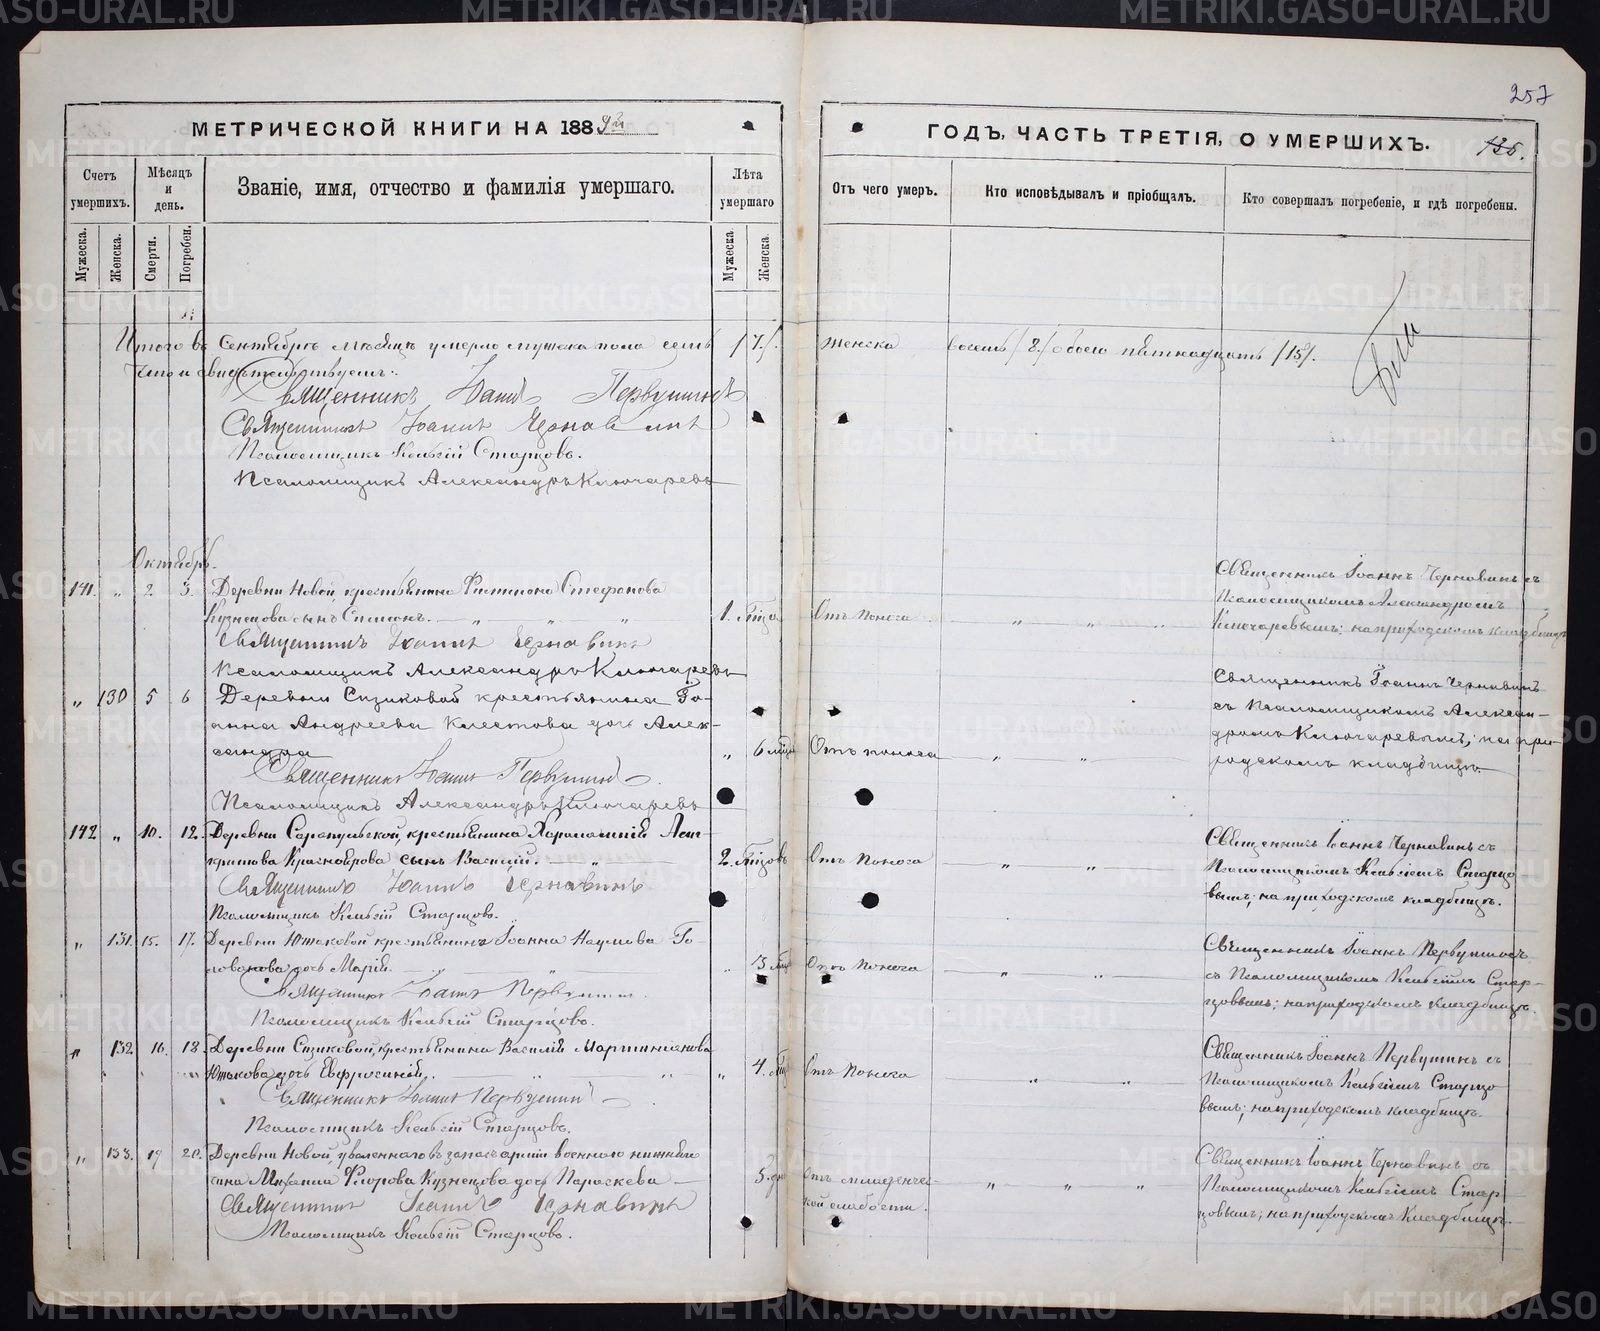 257
МЕТРИЧЕСКОЙ КНИГИ НА 1889й
ГОДЪ, ЧАСТЬ ТРЕТІЯ, О УМЕРШИХЪ.
135.
Счетъ умершихъ.
Мѣсяцъ и день.
Званіе, имя, отчество и фамилія умершаго.
Лѣта умершаго
Отъ чего умеръ.
Кто исповѣдывалъ и пріобщалъ.
Кто совершалъ погребеніе, и гдѣ погребены.
Мужеска.
Женска.
Смерти.
Погребен.
Мужеска
Женска.
Итого въ Сентябрѣ мѣсяцѣ умерло мужска пола семь /7./ женска восемь /8./ обоего пятнадцать /15/.
Что и свидѣтельствуемъ:
Священникъ Іоаннъ Первушинъ
Священникъ Іоаннъ Чернавинъ
Псаломщикъ Старцовъ.
Псаломщикъ Александръ Ключаревъ
Октябрь.
141. „ 2 3. Деревни Новой, крестьянина Стефанова
Кузнецова сынъ 1. Отъ поноса
Священникъ Іоаннъ Чернавинъ съ
Псаломщикомъ Александромъ
Ключаревымъ; на приходскомъ кладбищѣ
Священникъ Іоаннъ Чернавинъ
Псаломщикъ Александръ Ключаревъ
„ 130 5 6 Деревни Сизиковой крестьянина Іо-
анна Андреева Клестова дочь Алек-
сандра „ 6 мѣс Отъ поноса
Священникъ Іоаннъ Чернавинъ
съ Псаломщикомъ Алексан-
дромъ Ключаревымъ; на при-
ходскомъ кладбищѣ.
Священникъ Іоаннъ Первушинъ
Псаломщикъ Александръ Ключаревъ
142 „ 10. 12. Деревни Сарапульской, крестьянина
сынъ Василій. 2. Отъ поноса
Священникъ Іоаннъ Чернавинъ съ
Псаломщикомъ Старцо
вымъ; на приходскомъ кладбищѣ.
Священникъ Іоаннъ Чернавинъ
Псаломщикъ Старцовъ.
„ 131. 15. 17. Деревни Ютаковой крестьянина Іоанна Наумова Го-
лованова дочь Марія. „ 3 Отъ поноса
Священникъ Іоаннъ Первушинъ
съ Псаломщикомъ Стар-
цовымъ; на приходскомъ кладбищѣ.
Священникъ Іоаннъ Первушинъ
Псаломщикъ Старцовъ.
„ 132. 16. 18. Деревни Сизиковой, крестьянина Василія Мартиніанова
Ютакова дочь Евфросинія. „ 4. Отъ поноса
Священникъ Іоаннъ Первушинъ съ
Псаломщикомъ Старцо
вымъ; на приходскомъ кладбищѣ.
Священникъ Іоаннъ Первушинъ
Псаломщикъ Старцовъ.
„ 133. 19 20. Деревни Новой, уволеннаго въ запасъ арміи военнаго нижняго
чина Михаила Флорова Кузнецова дочь Параскева 5. дн Отъ младенчес-
кой слабости.
Священникъ Іоаннъ Чернавинъ съ
Псаломщикомъ Стар
цовымъ; на приходскомъ кладбищѣ.
Священникъ Іоаннъ Чернавинъ
Псаломщикъ Старцовъ.
METRIKI.GASO-URAL.RU